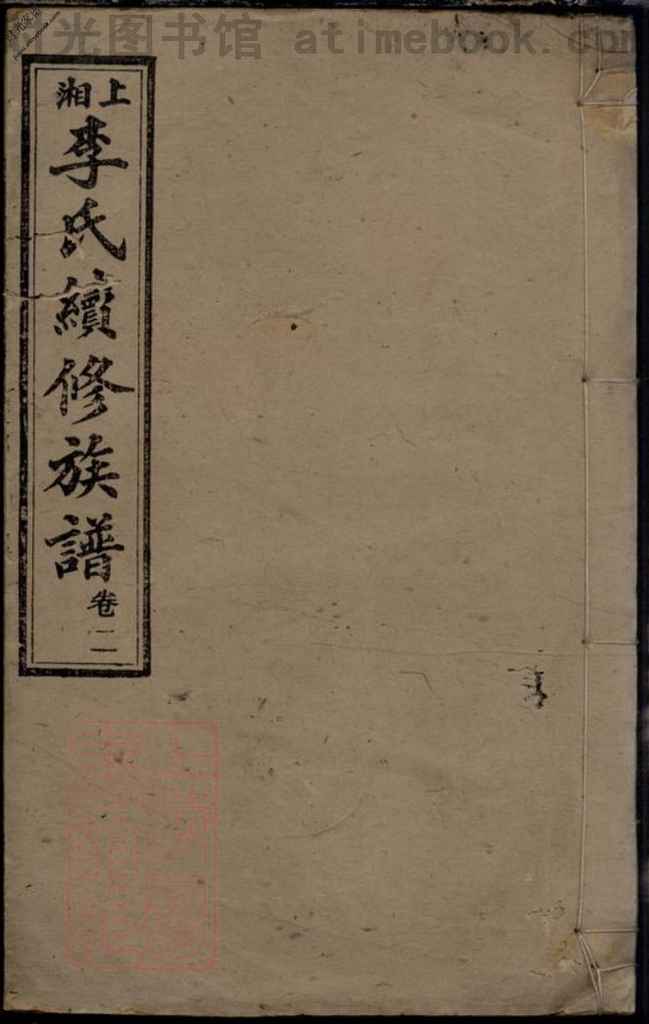 光图书馆 atimebook.com
上湘
李氏續修族譜
卷二